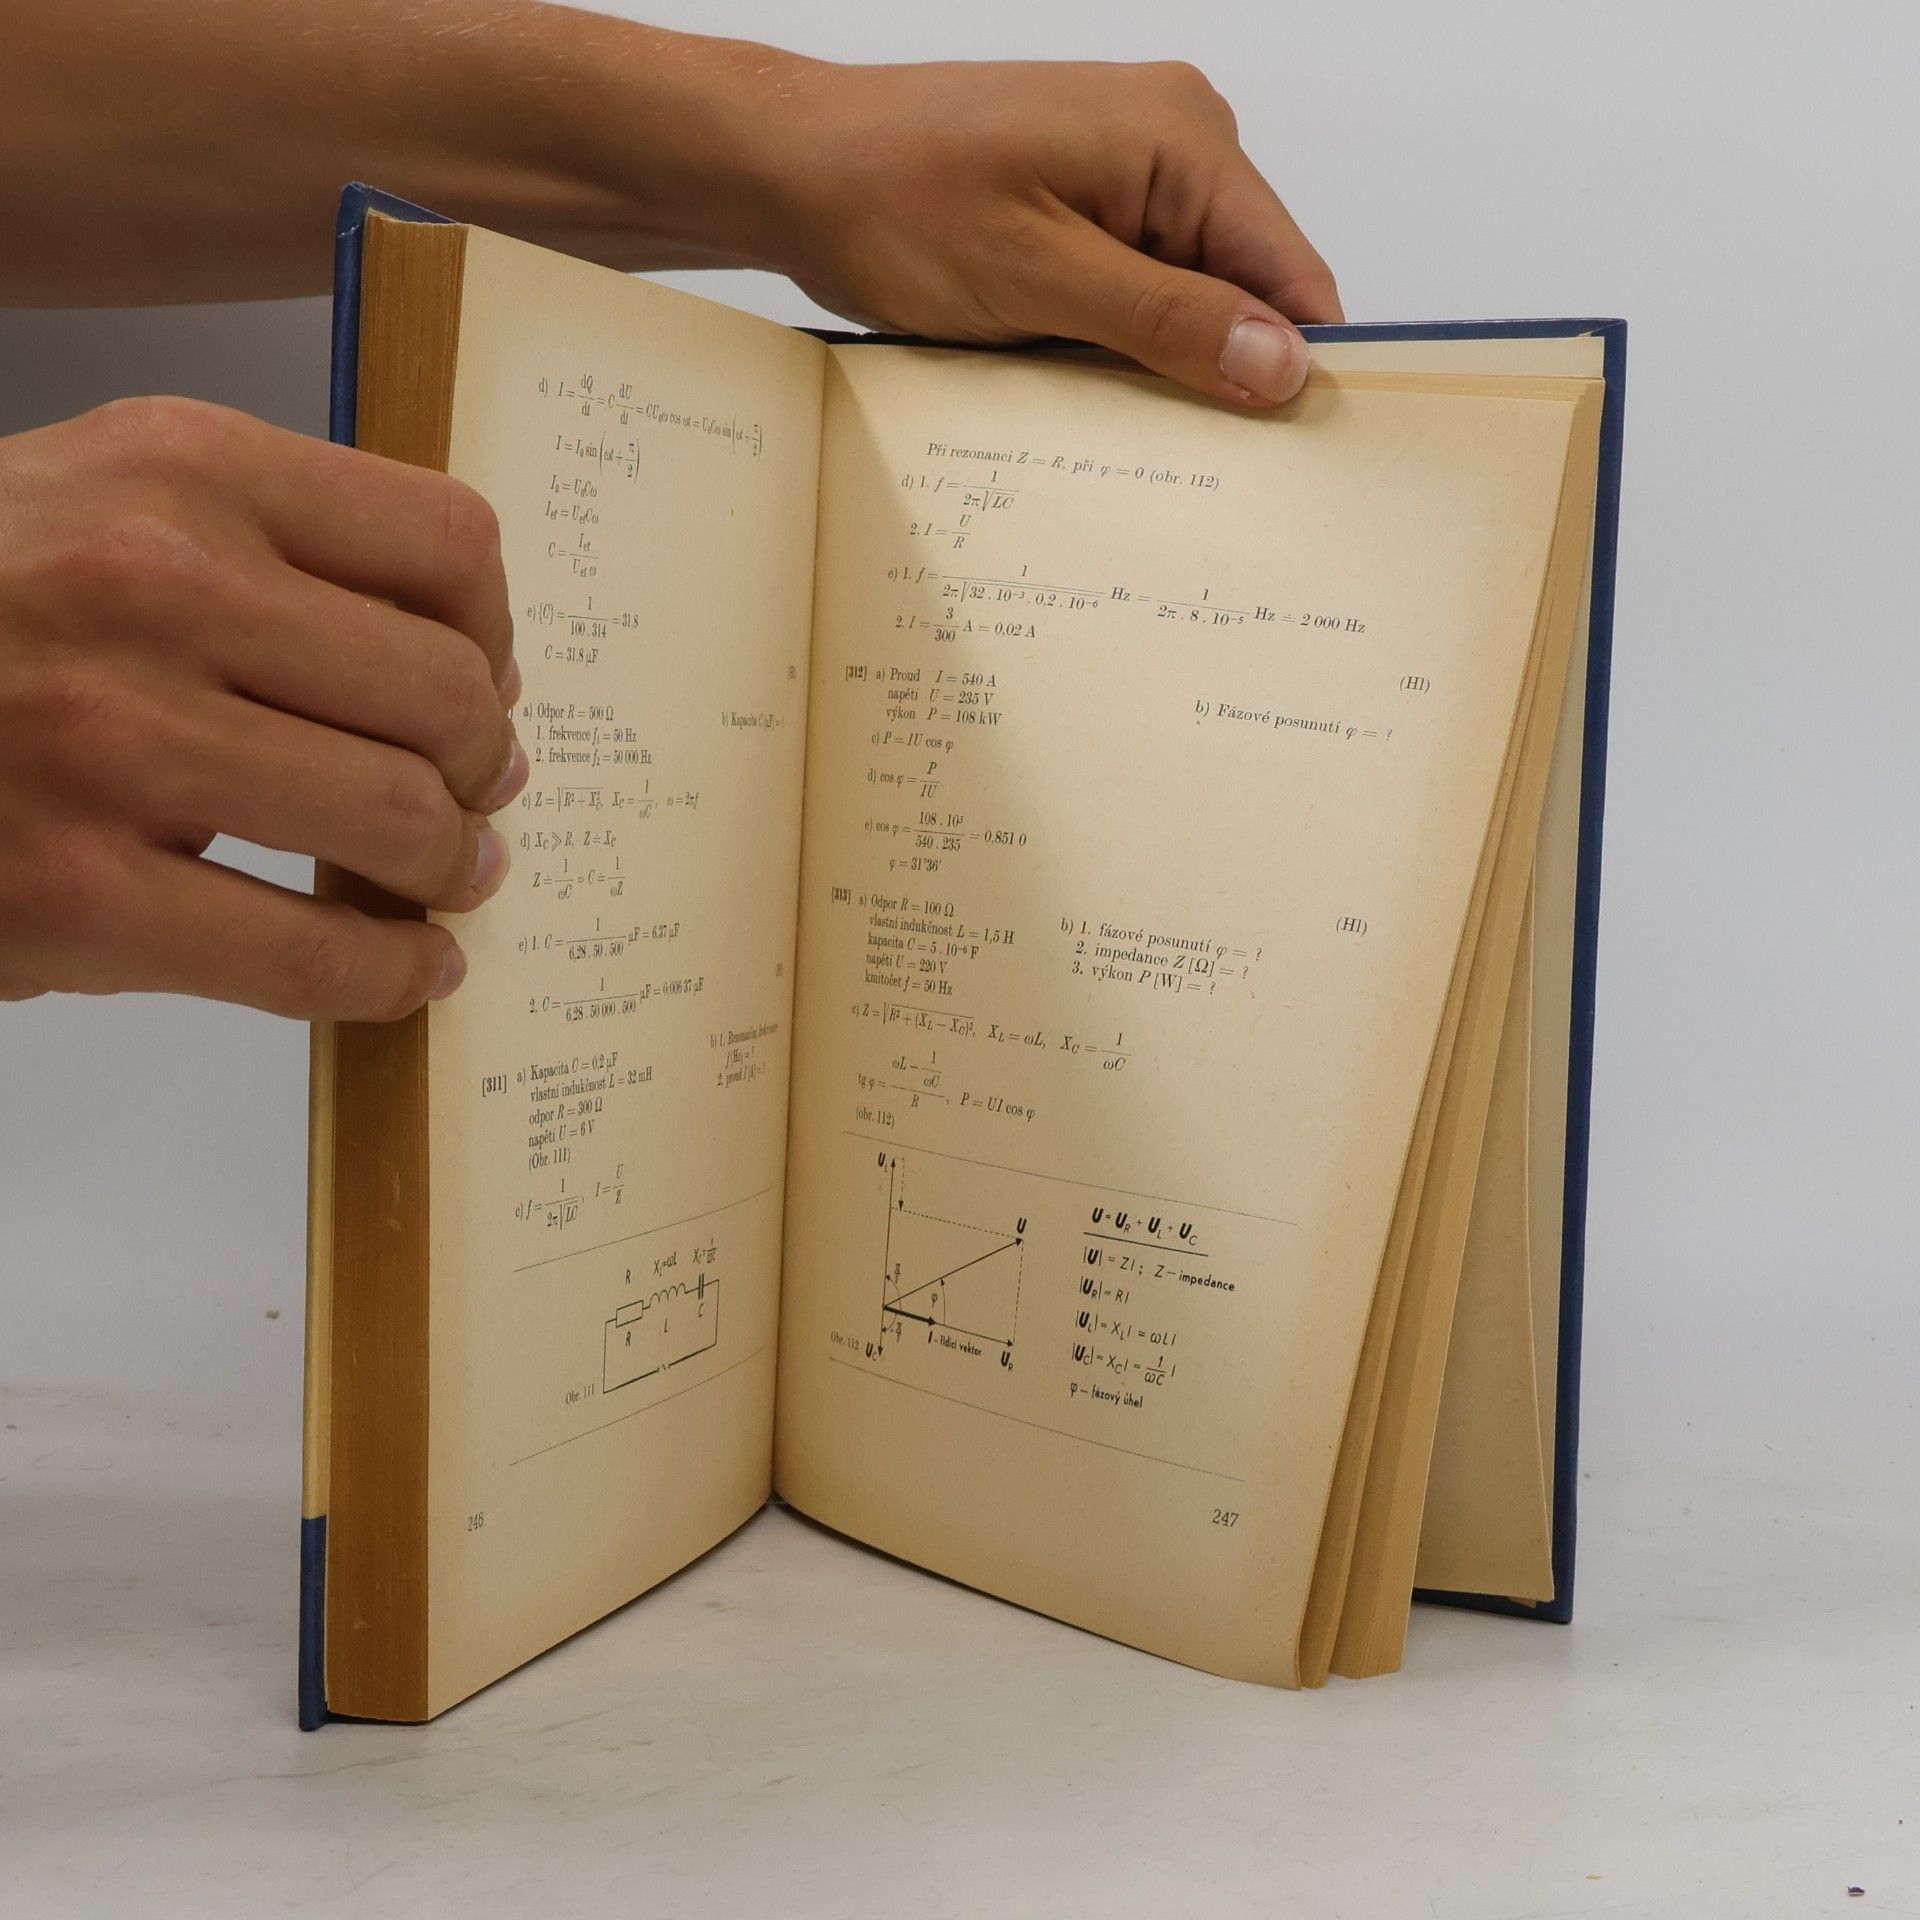 d) I = dQ/dt = C dU/dt = CU₀ω cos ωt = U₀Cω sin (ωt + π/2)
I = I₀ sin (ωt + π/2)
I₀ = U₀Cω
Ief = UefCω
C = Ief/Uef ω
e) {C} = 1/100 . 314 = 31,8
C = 31,8 μF
(Hl)
] a) Odpor R = 500 Ω
1. frekvence f₁ = 50 Hz
2. frekvence f₂ = 50 000 Hz
b) Kapacita C [μF] = ?
c) Z = √R² + X²C, XC = 1/ωC, ω = 2πf
d) XC ≫ R, Z ≐ XC
Z ≐ 1/ωC ⇒ C ≐ 1/ωZ
e) 1. C = 1/6,28 . 50 . 500 μF = 6,37 μF
2. C = 1/6,28 . 50 000 . 500 μF = 0,006 37 μF
(Hl)
[311] a) Kapacita C = 0,2 μF
vlastní indukčnost L = 32 mH
odpor R = 300 Ω
napětí U = 6 V
(Obr. 111)
b) 1. Rezonanční frekvence
f [Hz] = ?
2. proud I [A] = ?
c) f = 1/2π√LC, I = U/Z
R XL=ωL XC=1/ωC
R L C
~
Obr. 111
246
Při rezonanci Z = R, při φ = 0 (obr. 112)
d) 1. f = 1/2π√LC
2. I = U/R
e) 1. f = 1/2π√32 . 10⁻³ . 0,2 . 10⁻⁶ Hz = 1/2π . 8 . 10⁻⁵ Hz ≐ 2 000 Hz
2. I = 3/300 A = 0,02 A
(Hl)
[312] a) Proud I = 540 A
napětí U = 235 V
výkon P = 108 kW
b) Fázové posunutí φ = ?
c) P = IU cos φ
d) cos φ = P/IU
e) cos φ = 108 . 10³/540 . 235 = 0,851 0
φ = 31°36′
(Hl)
[313] a) Odpor R = 100 Ω
vlastní indukčnost L = 1,5 H
kapacita C = 5 . 10⁻⁶ F
napětí U = 220 V
kmitočet f = 50 Hz
b) 1. fázové posunutí φ = ?
2. impedance Z [Ω] = ?
3. výkon P [W] = ?
c) Z = √R² + (XL − XC)², XL = ωL, XC = 1/ωC
tg φ = ωL − 1/ωC/R, P = UI cos φ
(obr. 112)
UL
U
φ
I – řídicí vektor
UC
UR
Obr. 112
U = UR + UL + UC
|U| = ZI ; Z – impedance
|UR| = RI
|UL| = XLI = ωLI
|UC| = XCI = 1/ωC I
φ – fázový úhel
247